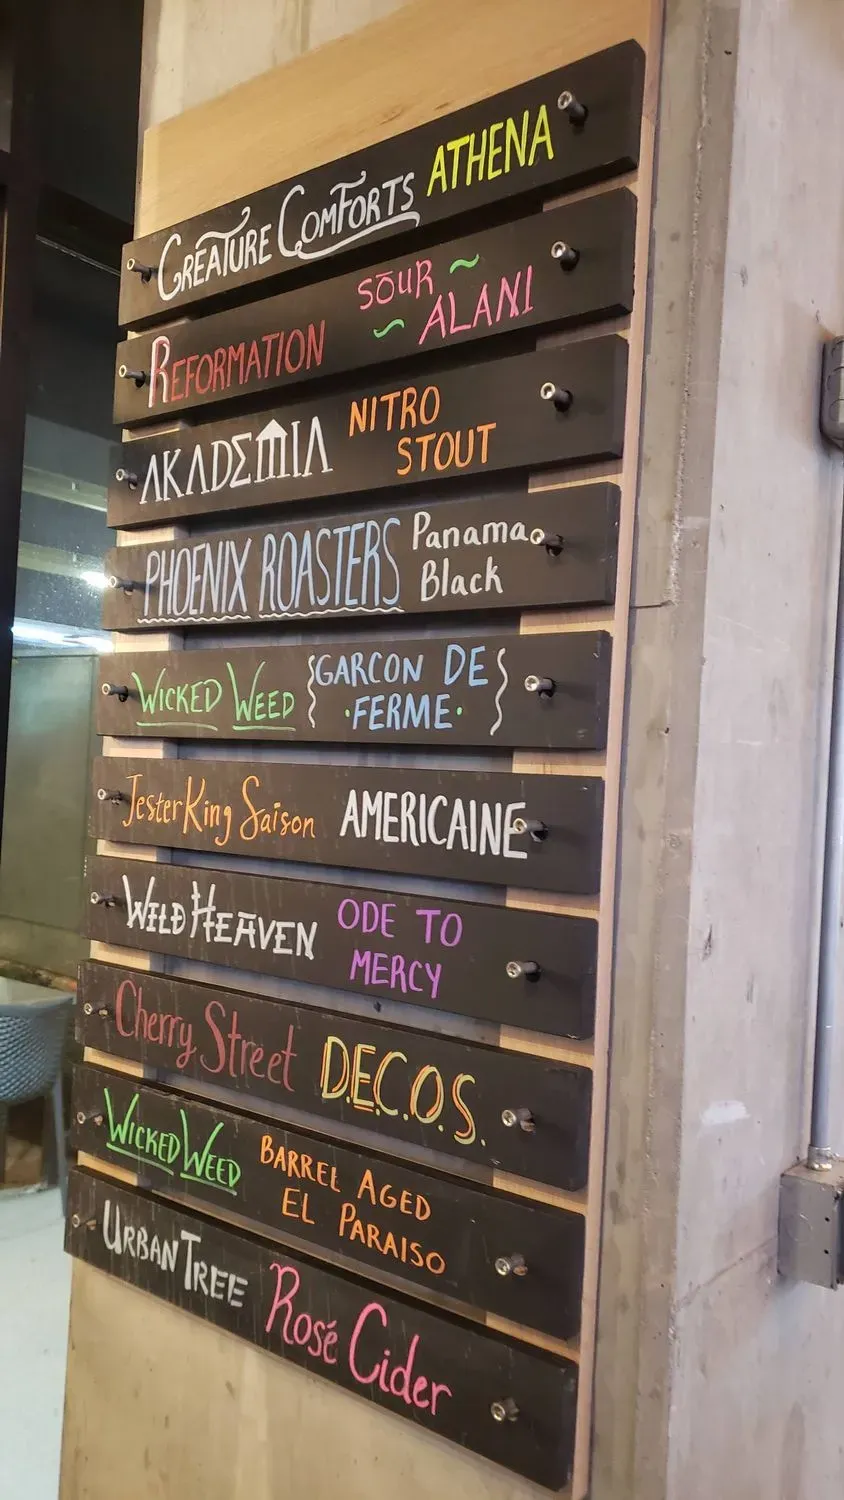 CREATURE COMFORTS ATHENA
REFORMATION SOUR ~
~ ALANI
AKADEMIA NITRO
STOUT
PHOENIX ROASTERS Panama
Black
WICKED WEED {GARCON DE
·FERME·}
JesterKing Saison AMERICAINE
WILD HEAVEN ODE TO
MERCY
Cherry Street D.E.C.O.S.
WICKED WEED BARREL AGED
EL PARAISO
URBAN TREE Rosé Cider